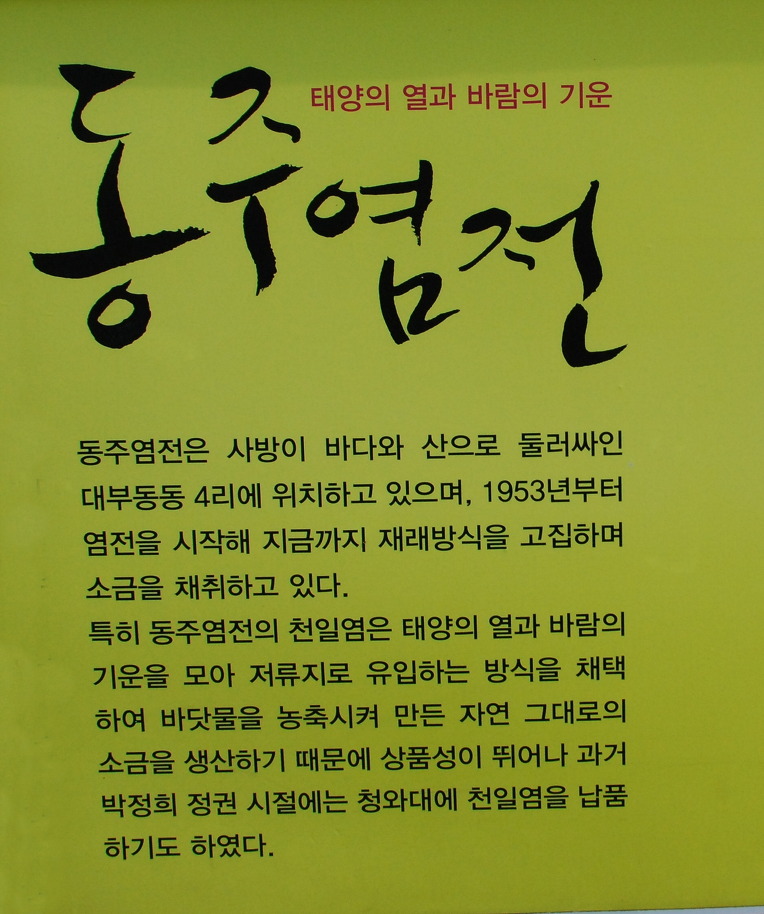 태양의 열과 바람의 기운
동주염전
동주염전은 사방이 바다와 산으로 둘러싸인
대부동동 4리에 위치하고 있으며, 1953년부터
염전을 시작해 지금까지 재래방식을 고집하며
소금을 채취하고 있다.
특히 동주염전의 천일염은 태양의 열과 바람의
기운을 모아 저류지로 유입하는 방식을 채택
하여 바닷물을 농축시켜 만든 자연 그대로의
소금을 생산하기 때문에 상품성이 뛰어나 과거
박정희 정권 시절에는 청와대에 천일염을 납품
하기도 하였다.